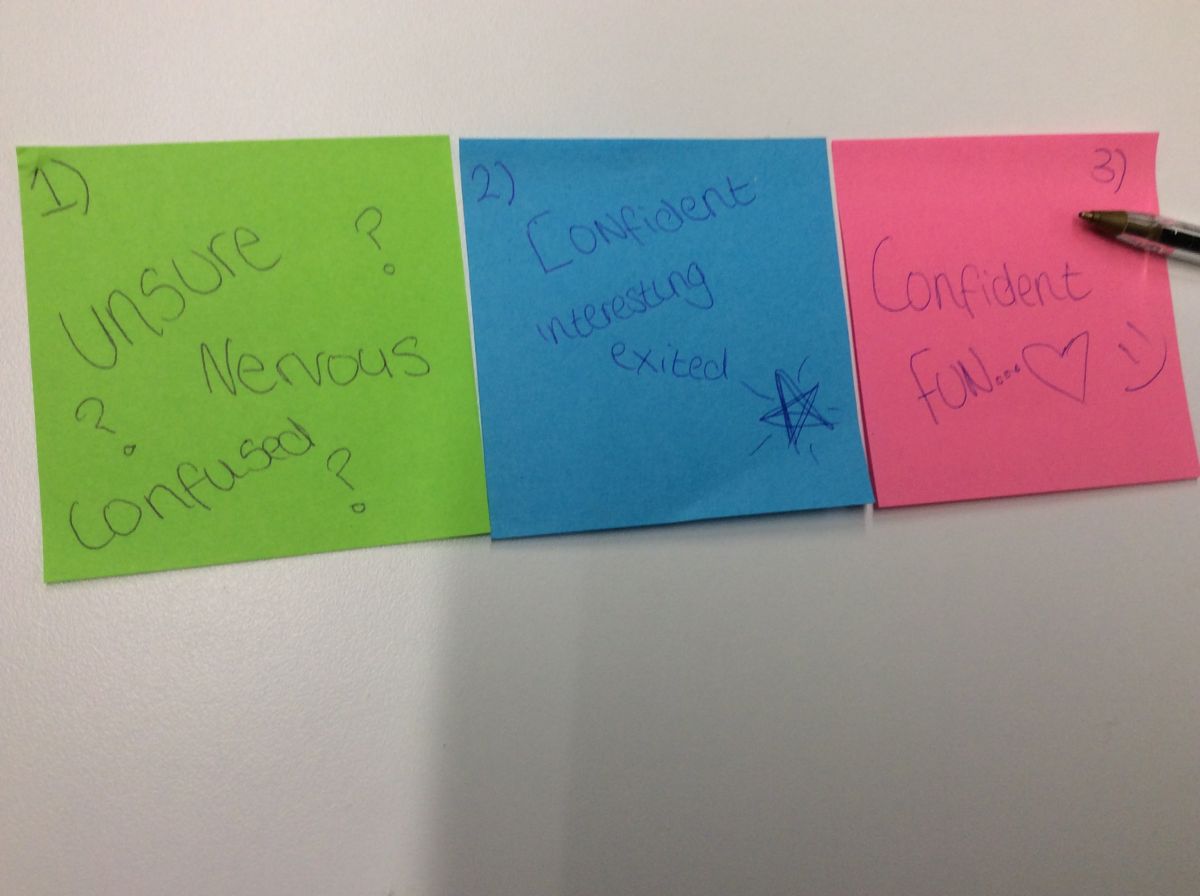 1)
unsure ?
Nervous
?
confused ?
2)
Confident
interesting
exited
3)
Confident
FUN... ♡ :)